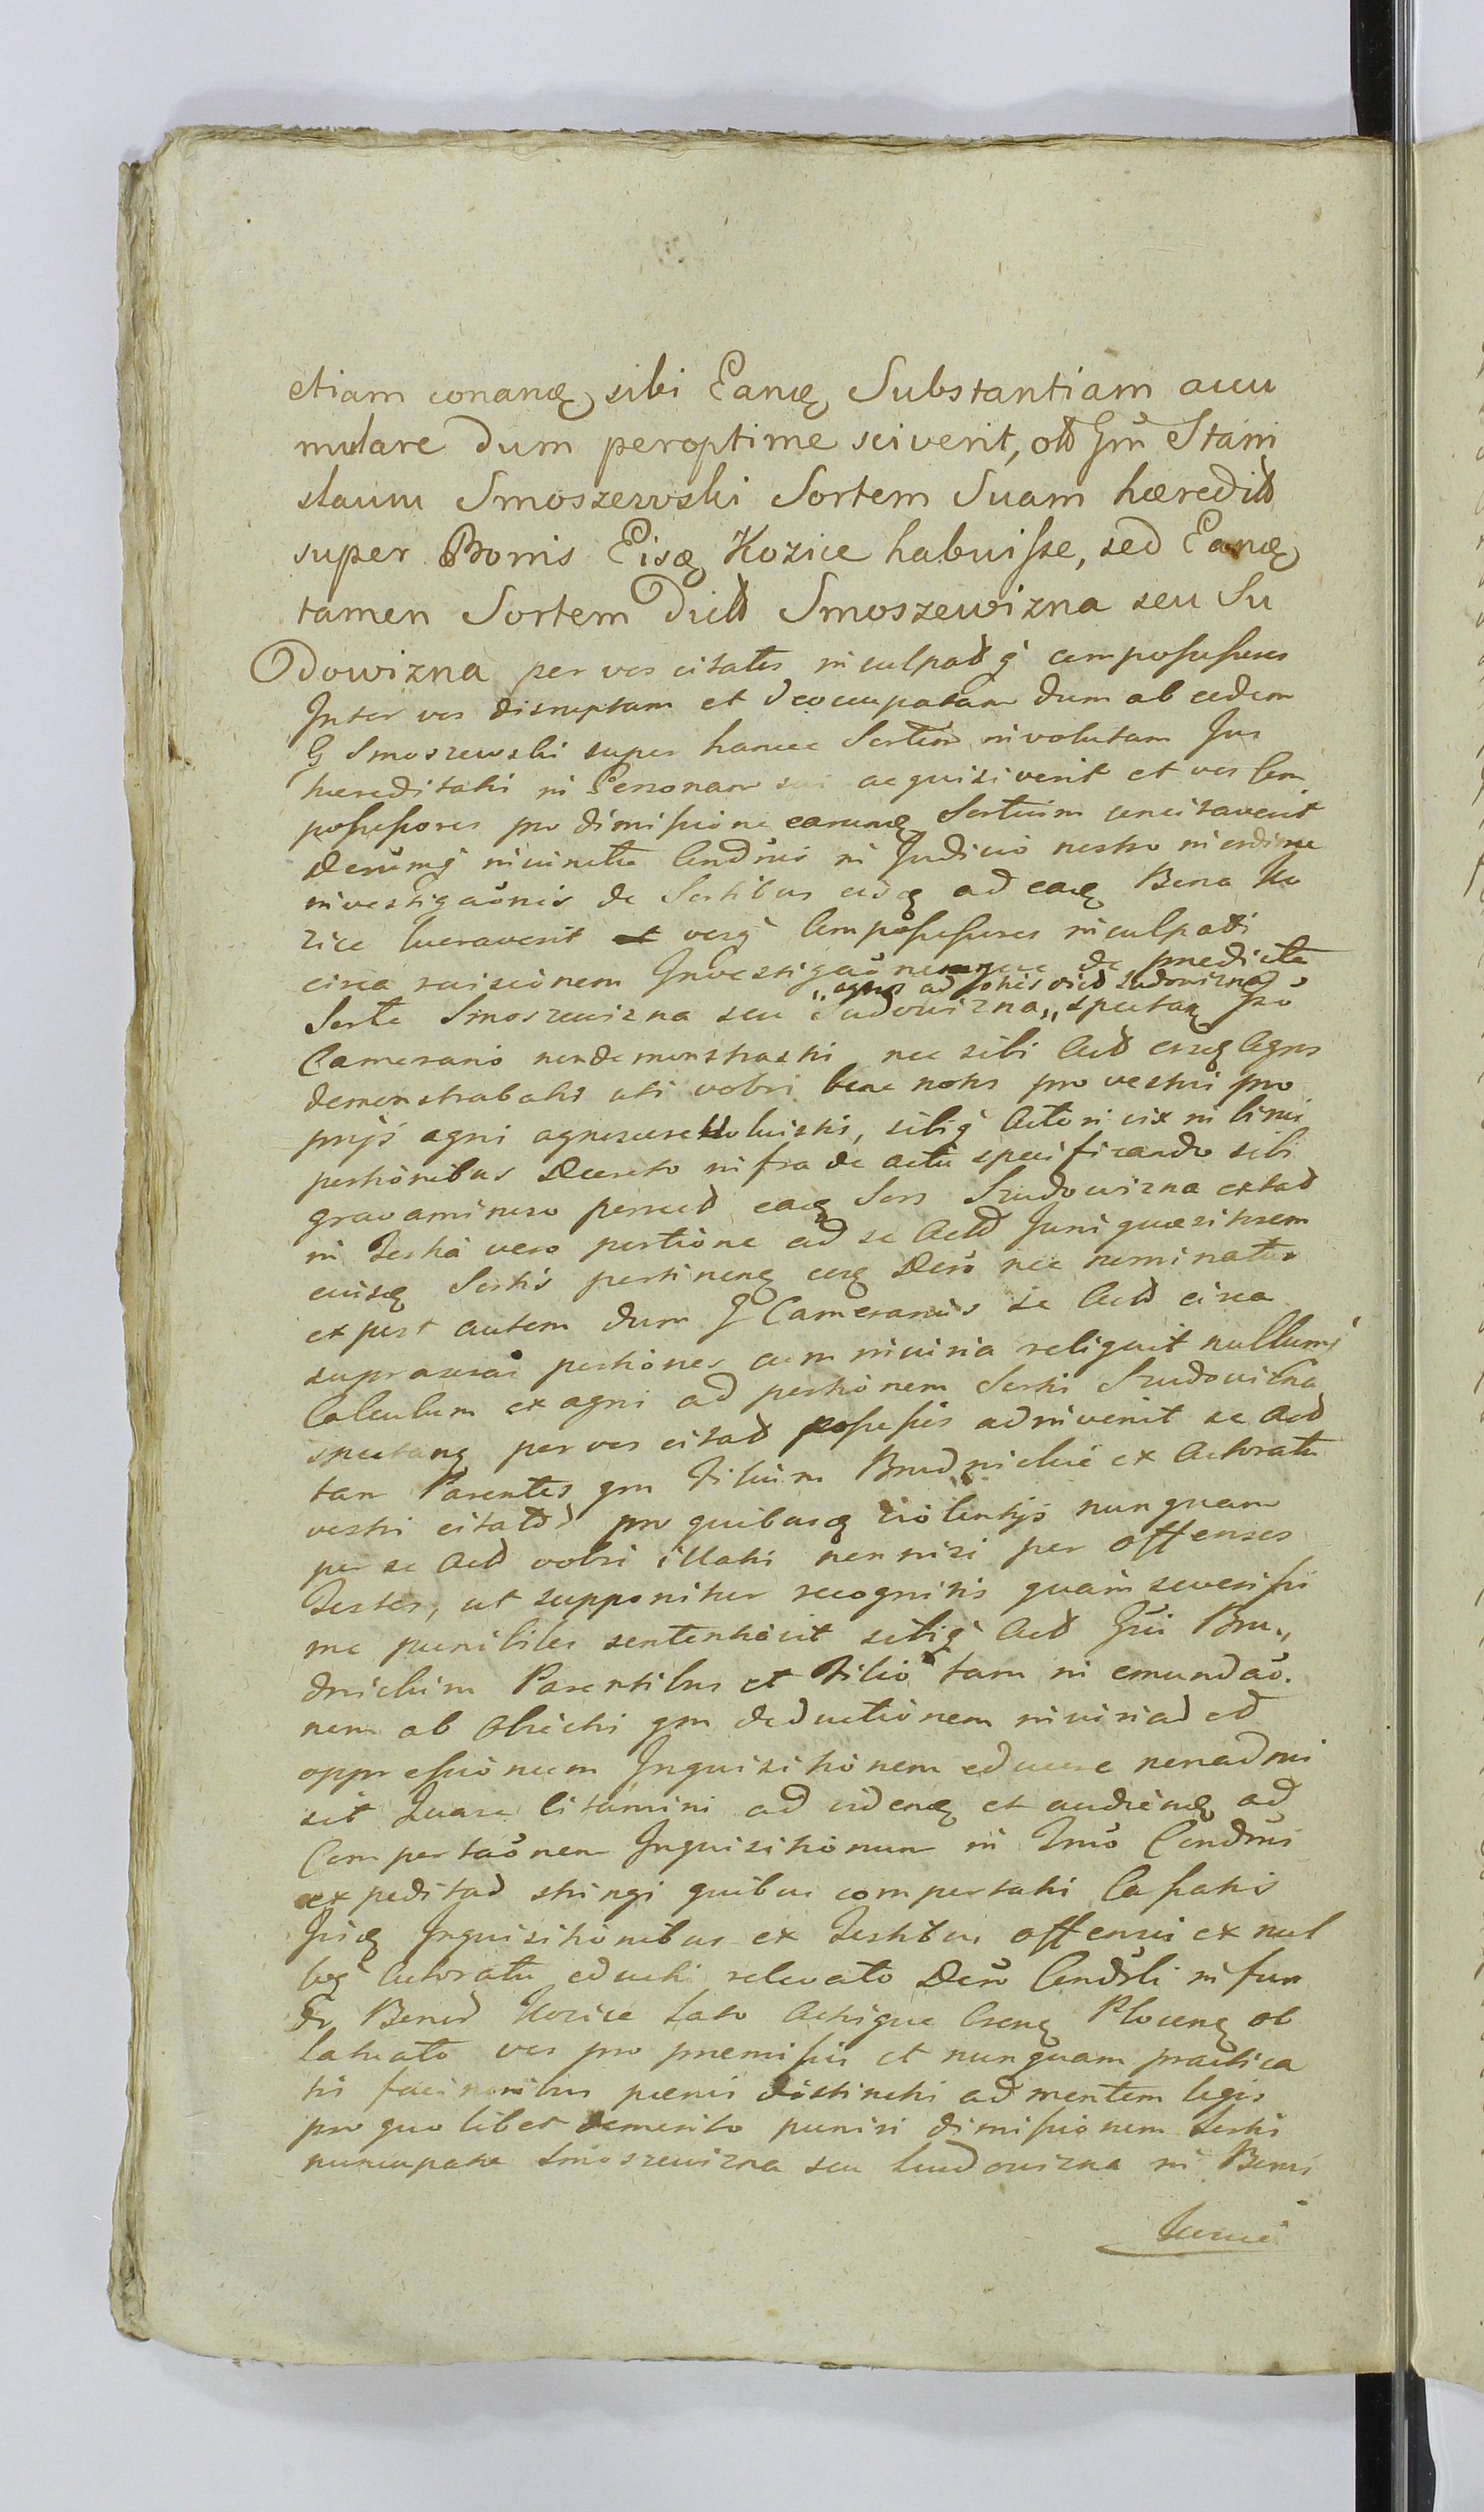 etiam conanę sibi Eanę Substantiam accu
mulare dum peroptime sciverit, Gm̃ Stani
slaum Smoszewski Sortem Suam hæredit
super Bonis Eisę Kozice habuiſse, sed Eanę
tamen Sortem Dict Smoszewizna seu Su
dowizna per vos citatis inculpat q̃ compoſseſsores
Inter vos disruptam et deoccupatam dum ab eodem
G Smoszewski super hancce Sortem involutam Jus
hæreditatis in Personam sui acquisiverit et vos Com
poſseſsores pro dimiſsione earumę Sortium concitaverit
Decumq̃ in Judicio nostro in ordine
investigaõnis de Sortibus eisę ad eaę Bona Ko
zice lucraverit vosq̃ Compoſseſsores inculpati
circa Investigaõnemque de prædicta
agros ad Sortis dict Sudowizna
Sorte Smoszewizna seu Sudowizna,, spectaņ Jño
Camerario non demonstrasti nec sibi Act eosę Agros
demonstrabatis uti vobis bene notis pro vestris pro
prijs agris agnoscere voluistis, sibiq̃ Actori vix in binis
portionibus Decreto infra de actu specificando sibi
gravaminoso pervect eaę Sors Sudowizna extad
in tertia vero portione ad se Act Juri quæsitorem
eiusę Sortis pertinenę eoę Decr̃o nec nominatur
ex post autem dum J Camerarius se Act circa
suprascras portiones cum iniuria reliquit nullumq̃
Calculum ex agris ad portionem Sortis Sudowizna
spectanę per vos citat poſseſsis adinvenit se Act
tam Parentes qm Filium Brudnickie ex Actoratu
vestri citatt pro quibusę violentijs nunquam
per se Act vobis illatis non nisi per offensos
Testes, ut supponitur recognitis quam severiſsi
me punibiles sententiavit sibiq̃ Act Gñi Bru,,
dnickim Parentibus et Filio tam in emundaõ.
nem ab Obiectis qm deductionem iniuriad et
oppreſsionum Inquisitionem educere non admi
sit Quare Citamini ad videnę et audienę ad
Comportaõnem Inquisitionum in Tr̃ño Cond̃ni
expeditad stringi quibus comportatis Caſsatis
Jisę Inquisitionibus ex Testibus offensis ex nul
loq̃ Actoratu eductis relevato Decr̃o Cond̃rli in fun
do Bonod Kozice lato Actisque Csenę Plocenę ob
latuato vos pro præmiſsis et nunquam practica
tis facinoribus pœnis districtis ad mentem legis
pro quo libet demerito puniri dimiſsionem Sortis
nuncupatæ Smoszewizna seu Sudowizna in Bonis